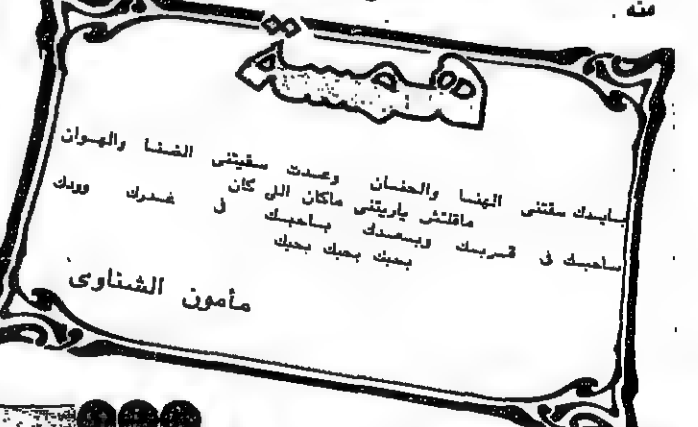 منه .
همسة
بايدك سقتنى الهنا والحنان وعدت سقيتنى الضنا والهوان
ماقلتش ياريتنى ماكان اللى كان
ساحبك فى قربك وبعدك باحبك فى غدرك وودك
بحبك بحبك بحبك
مأمون الشناوى